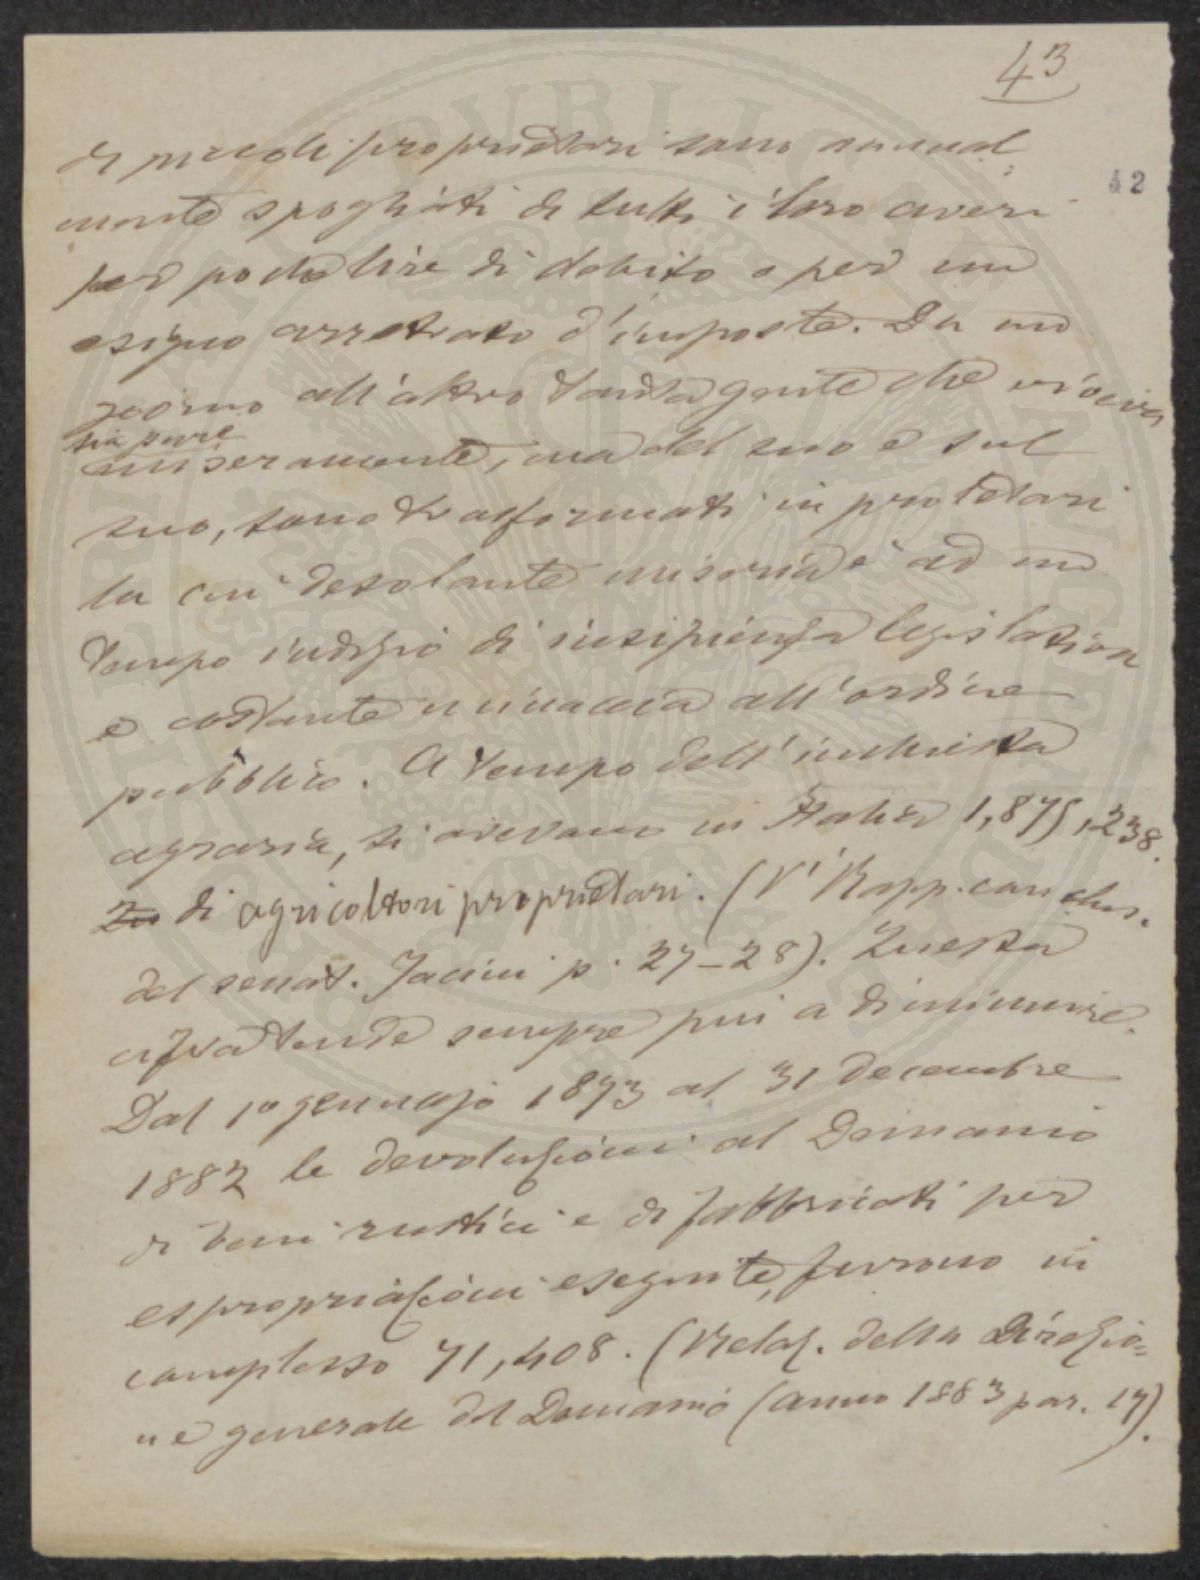 43
42
di piccoli proprietari sono annual
mente spogliati di tutti i loro averi
per poche lire di debito o per un
esiguo arretrato d'imposte. Da un
giorno all'altro tanta gente che viveva
sia pure
miseramente, ma del suo e sul
suo, sono trasformati in proletari
la cui desolante miseria è ad un
tempo indizio di insipienza legislativa
e costante minaccia all'ordine
pubblico. Al tempo dell'inchiesta
agraria, si avevano in Italia 1,875,238.
di agricoltori proprietari. (V' Rapp. conclus.
del senat. Jacini p. 27-28). Questa
cifra tende sempre piu a diminuire.
Dal 1º gennajo 1873 al 31 decembre
1882 le devoluzioni al Demanio
di beni rustici e di fabbricati per
espropriazioni eseguite, furono in
complesso 71,408. (Relaz. della Direzio=
ne generale del Demanio (anno 1883 par. 17).